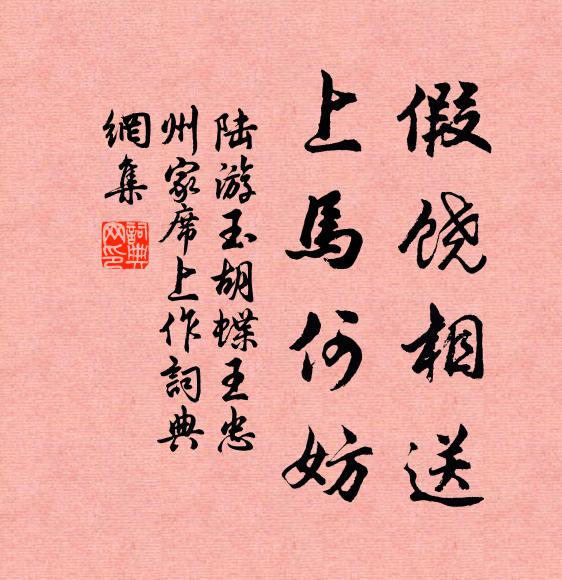 假饶相送
上馬何妨
陆游玉胡蝶王忠
州家席上作詞典
網集
詞典
网印